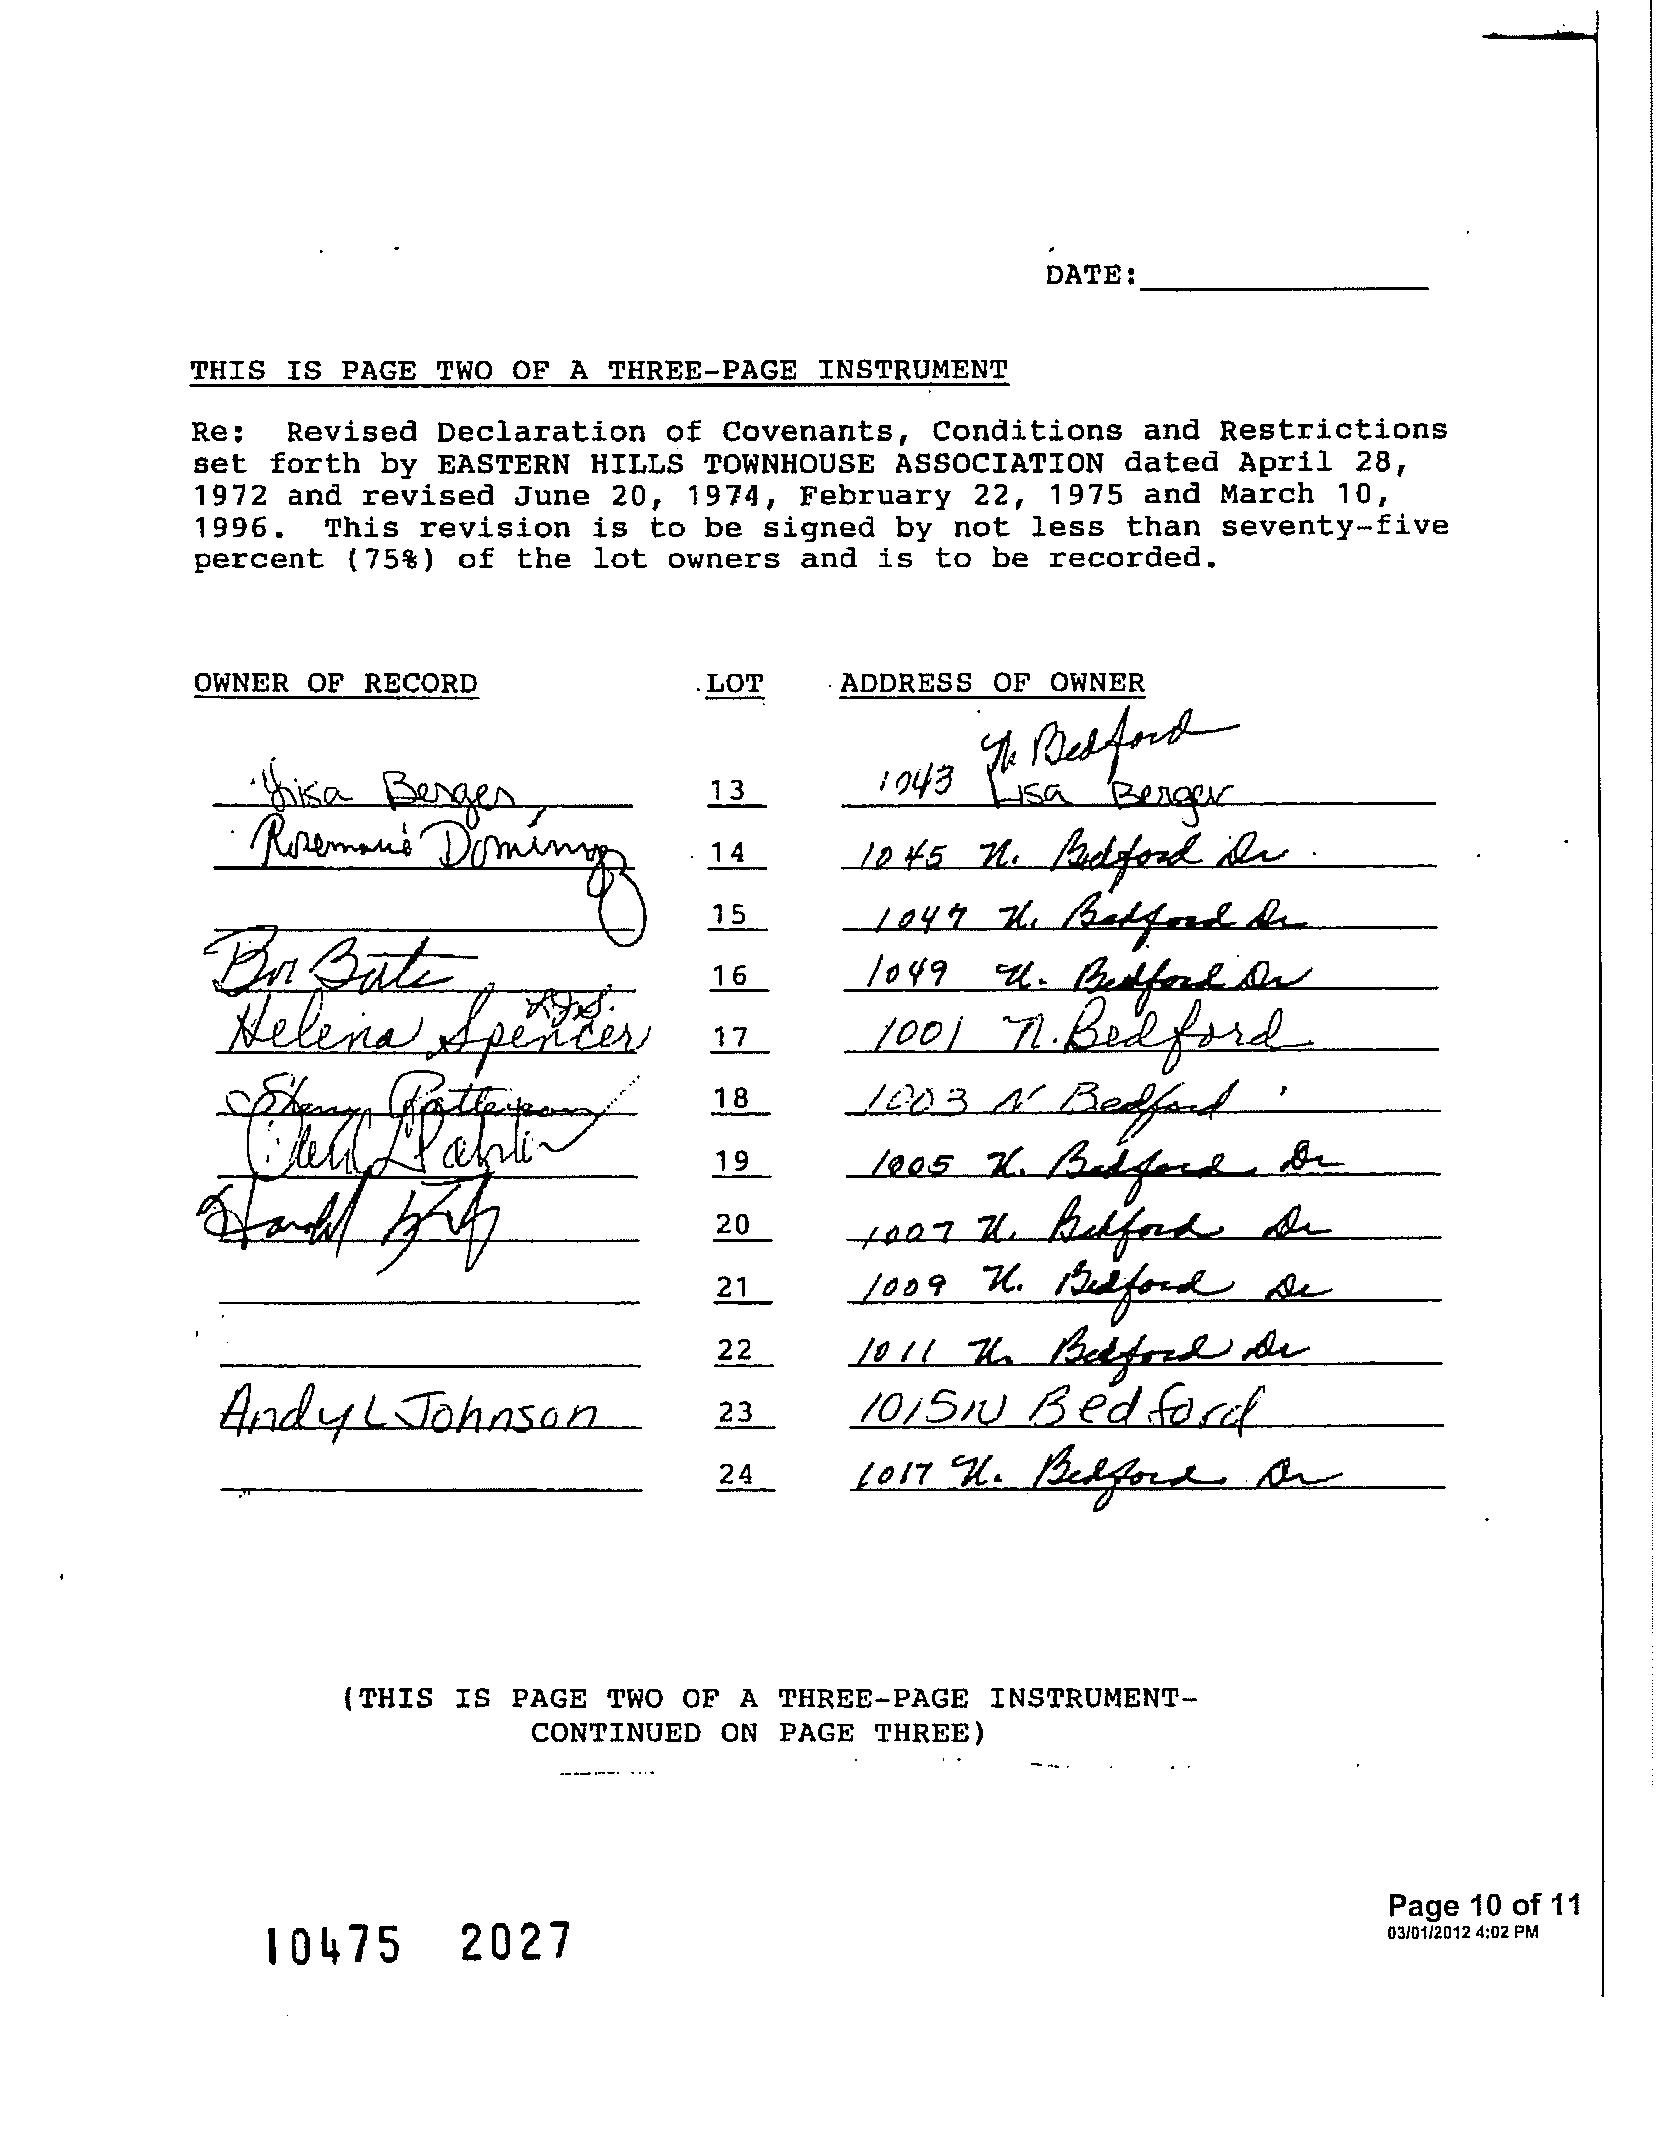 DATE:
THIS IS PAGE TWO OF A THREE-PAGE INSTRUMENT
Re: Revised Declaration of Covenants, Conditions and Restrictions
set forth by EASTERN HILLS TOWNHOUSE ASSOCIATION dated April 28,
1972 and revised June 20, 1974, February 22, 1975 and March 10,
1996. This revision is to be signed by not less than seventy-five
percent (75%) of the lot owners and is to be recorded.
OWNER OF RECORD LOT ADDRESS OF OWNER
N Bedford
Lisa Berger 13 1043 Lisa Berger
Rosemarie 14 1045 N. Bedford Dr
15 1047 N. Bedford Dr
16 1049 N. Bedford Dr
Helena Spencer 17 1001 N. Bedford
Patterson 18 1003 N Bedford
19 1005 N. Bedford Dr
Harold 20 1007 N. Bedford Dr
21 1009 N. Bedford Dr
22 1011 N. Bedford Dr
Andy L Johnson 23 1015 N Bedford
24 1017 N. Bedford Dr
(THIS IS PAGE TWO OF A THREE-PAGE INSTRUMENT-
CONTINUED ON PAGE THREE)
Page 10 of 11
03/01/2012 4:02 PM
10475 2027